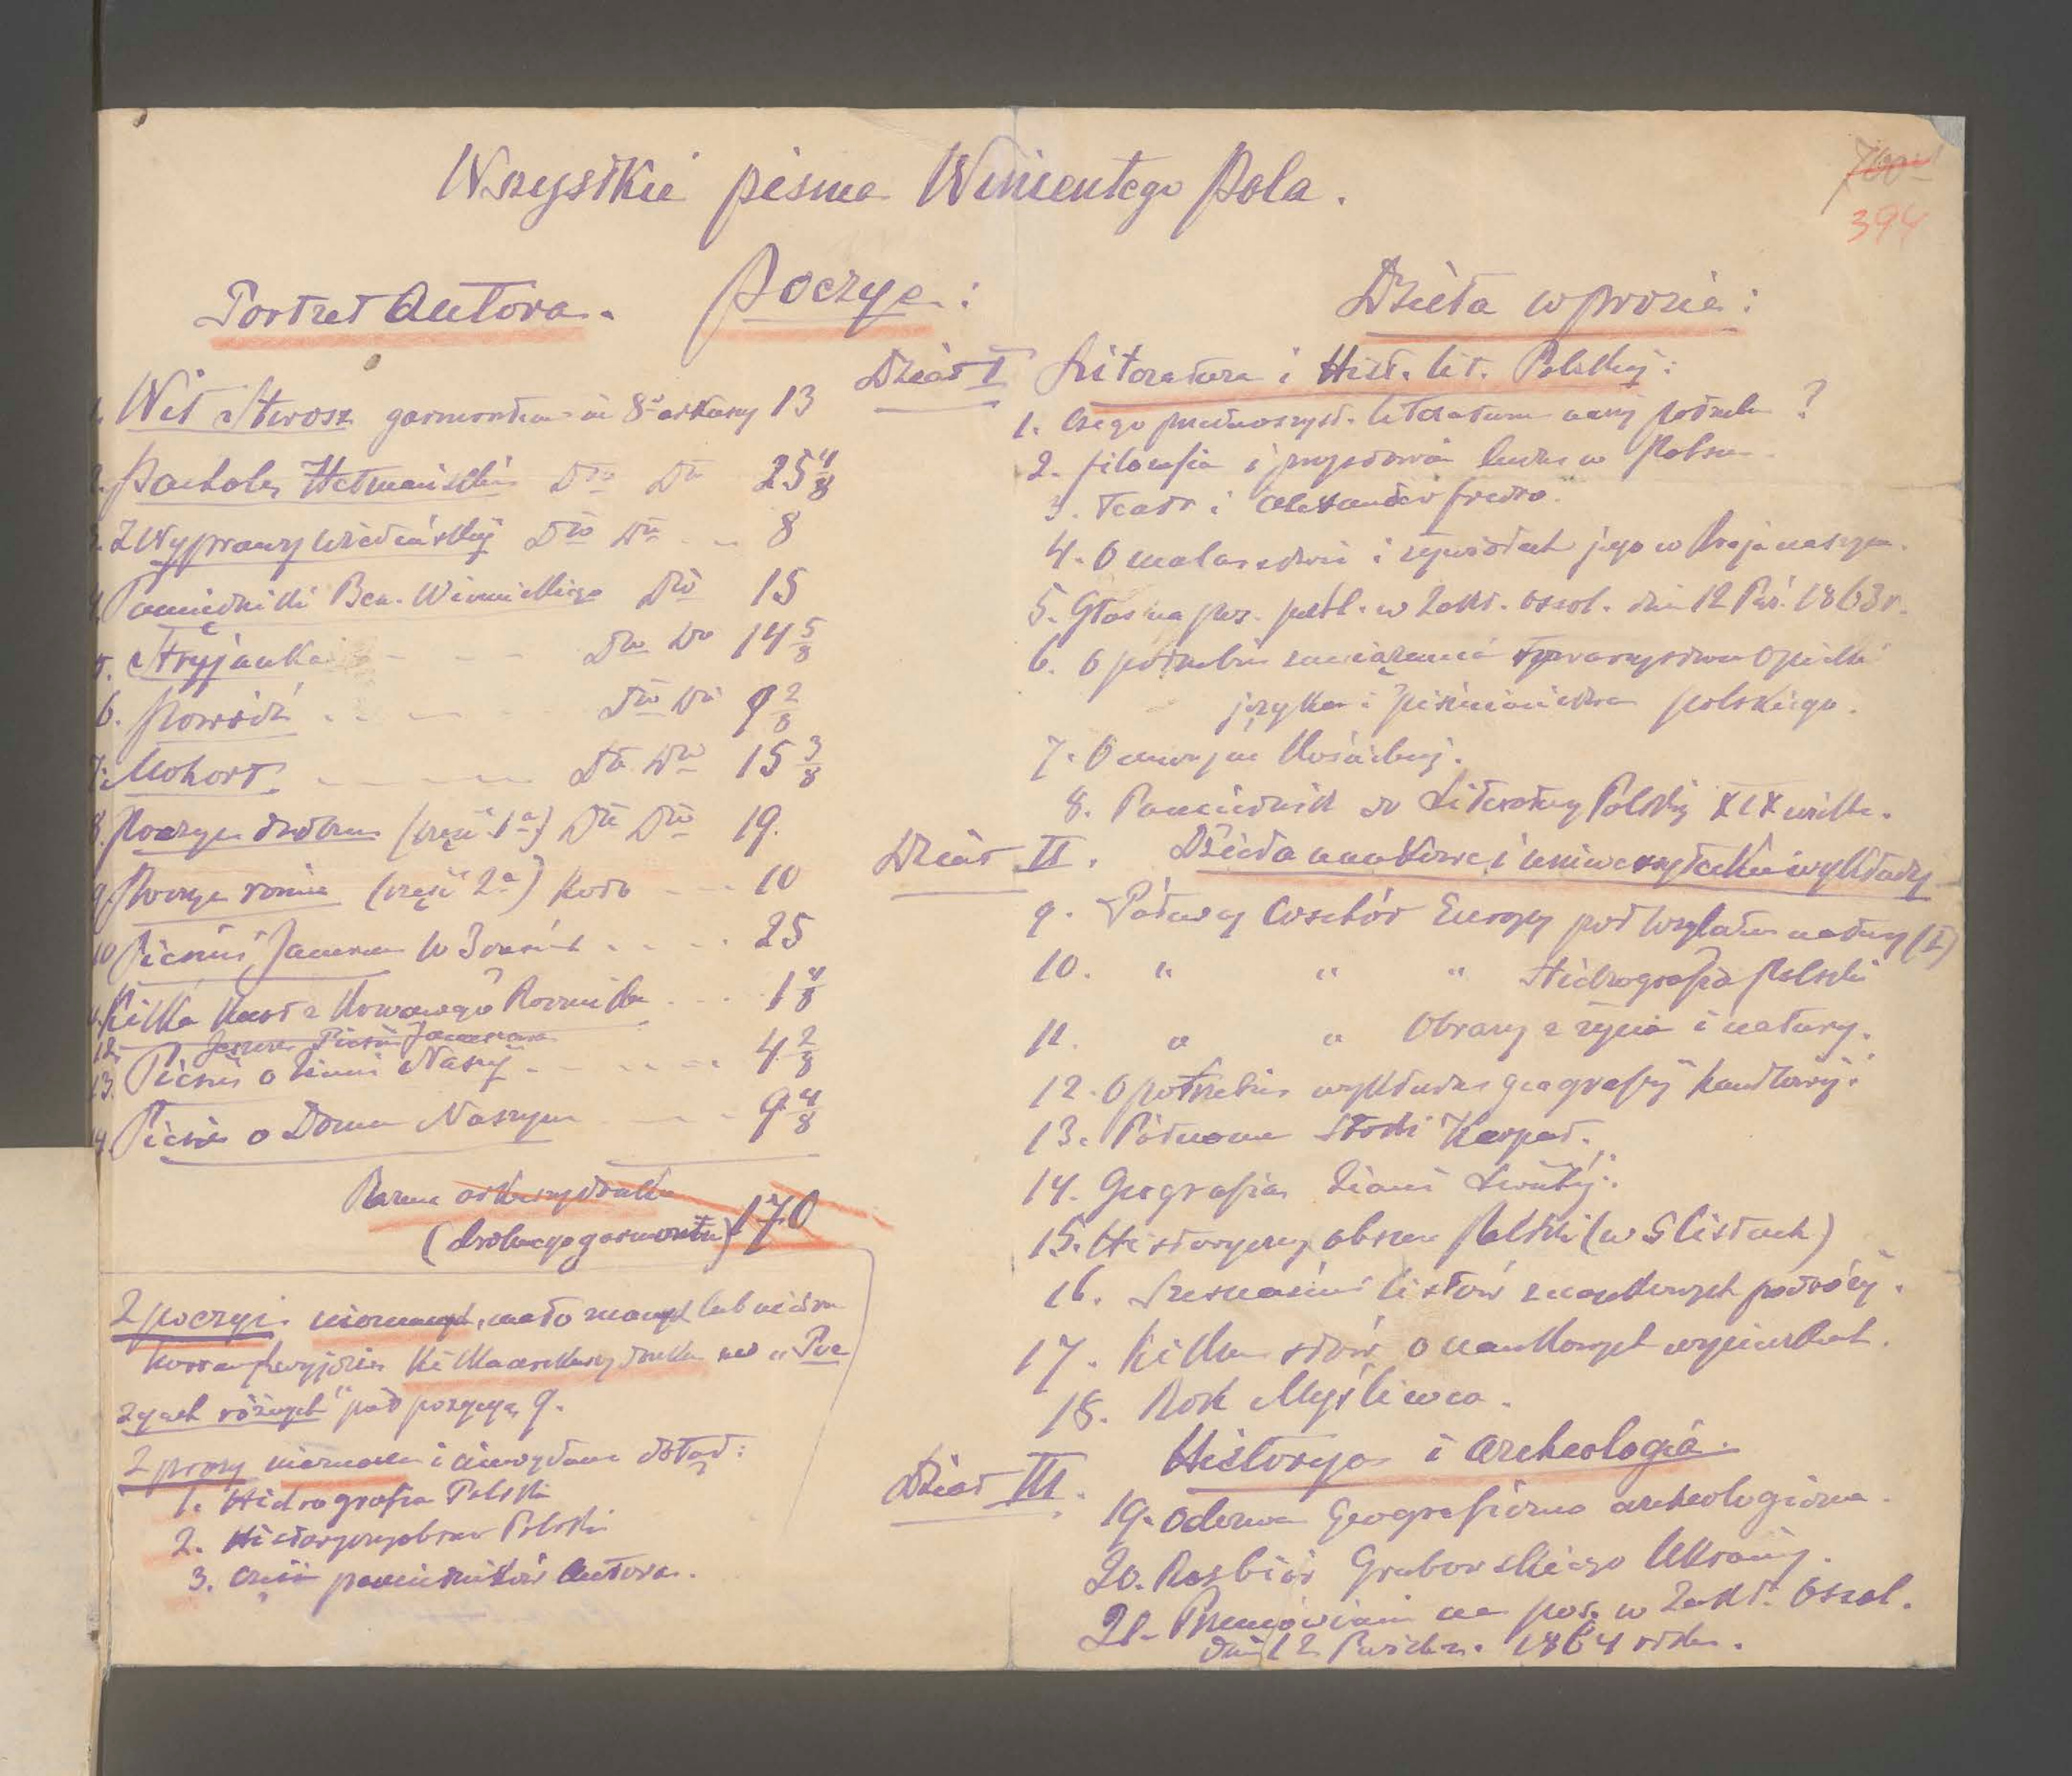 Wszystkie pisma Winientego Pola.
700
394
Portret Autora.
Poezye:
1. Wit Stwosz garmontem in 8o arkuszy 13
2. Pacholę Hetmańskie Dto Dto 25 4/8
3. Z Wyprawy wiedeńskiej Dto Dto 8
4. Pamiętniki Ben. Winnickiego Dto 15
5. Stryjanka - - - Dto Do 14 5/8
6. Powódź Dto Do 9 2/8
7. Mohort Dto Dto 15 3/8
8. Poezye drobne (część 1a) Dto Dto 19.
9. Poezye różne (część 2a) - - - 10
10 Pieśni Janusza . . . . 25
11. Kilka kart z Krwawego Rocznika . . . 1 4/8
12. Jeszcze Pieśń Janusza
13. Pieśń o Ziemi Naszej - - - - 4 2/8
14. Pieśń o Domu Naszym 9 4/8
Razem arkuszy druku
(drobnego garmontu) 170
Z poezyi nieznanych, mało znanych lub
kilka arkuszy druku „Poe
zyach różnych" pod pozycyą 9.
Z prozy nieznane i niewydane dotąd:
1. Hidrografia Polski
2. Historyczny obszar Polski
3. Części pamiętników Autora.
Dzieła w prozie:
Dział I Literatura i Hist. lit. Polskiej:
1. Czego przedewszyst. literaturze naszej potrzeba?
2. Filozofia i przysłowia ludu w Polsce
3. Teatr i Aleksander Fredro.
4. O malarstwie i żywiołach jego w kraju naszym.
5. Głos na pos. publ. w Zakł. Ossol. dnia 12 Paź. 1863 r.
6. O potrzebie zawiązania towarzystwa opieki
języka i piśmiennictwa polskiego.
7. O muzyce kościelnej.
8. Pamiętnik do Literatury Polskiej XIX wieku.
Dział II. Dzieła naukowe i uniwersyteckie wykłady
9. Północny Wschód Europy pod względem natury (I)
10. „ „ „ Hidrografia Polski
11. „ „ Obrazy z życia i natury.
12. O potrzebie wykładu geografii handlowej.
13. Północne Stoki Karpat.
14. Geografia Ziemi Świętej.
15. Historyczny obszar Polski (w 5 listach)
16. Szesnaście listów z naukowych podróży.
17. Kilka słów o naukowych wycieczkach.
18. Rok Myśliwca.
Dział III. Historya i Archeologia.
19. Odezwa Geograficzno archeologiczna.
20. Rozbiór Grabowskiego Ukrainy.
21. Przemówienie na pos. w Zakł. Ossol.
dnia 12 Paździer. 1864 roku.